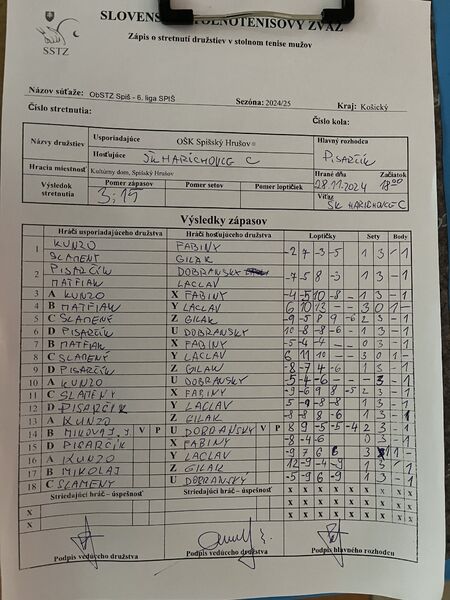 SLOVENSKÝ STOLNOTENISOVÝ ZVÄZ
Zápis o stretnutí družstiev v stolnom tenise mužov
SSTZ
Názov súťaže: ObSTZ Spiš - 6. liga SPIŠ Sezóna: 2024/25 Kraj: Košický
Číslo stretnutia: Číslo kola:
Názvy družstiev Usporiadajúce OŠK Spišský Hrušov Hlavný rozhodca
Hosťujúce ŠK HARICHOVCE C PISARČÍK
Hracia miestnosť Kultúrny dom, Spišský Hrušov Hrané dňa Začiatok
28.11.2024 18:00
Výsledok stretnutia Pomer zápasov Pomer setov Pomer loptičiek Víťaz
3:15 ŠK HARICHOVCE C
Výsledky zápasov
Hráči usporiadajúceho družstva Hráči hosťujúceho družstva Loptičky Sety Body
1 KUNZO FABINY -2 7 -3 -5 1 3 - 1
SLAMENÝ GILAK
2 PISARČÍK DOBRANSKY -7 -5 8 -3 1 3 - 1
MATFIAK LACLAV
3 A KUNZO X FABINY 1 3 - 1
4 B MATFIAK Y LACLAV 6 10 3 0 1 -
5 C SLAMENÝ Z GILAK 2 3 - 1
6 D PISARČÍK U DOBRANSKY 10 -8 -8 -6 1 3 - 1
7 B MATFIAK X FABINY -5 -4 -4 0 3 - 1
8 C SLAMENÝ Y LACLAV 6 11 10 3 0 1 -
9 D PISARČÍK Z GILAK -8 -7 4 -6 1 3 - 1
10 A KUNZO U DOBRANSKY -5 -4 -6 - 3 - 1
11 C SLAMENÝ X FABINY 2 3 - 1
12 D PISARČÍK Y LACLAV 1 3 - 1
13 A KUNZO Z GILAK 1 3 - 1
14 B MIKOLAJ J V P U DOBRANSKY V P 8 9 -5 -5 -4 2 3 - 1
15 D PISARČÍK X FABINY -8 -4 -6 0 3 - 1
16 A KUNZO Y LACLAV -9 7 6 8
17 B MIKOLAJ Z GILAK 12 -9 -4 -9 1 3 - 1
18 C SLAMENÝ U DOBRANSKY -5 -9 6 -9 1 3 - 1
Striedajúci hráč - úspešnosť Striedajúci hráč - úspešnosť x x x x x x x x x
X X x x x x x x x x x
X X x x x x x x x x x
Podpis vedúceho družstva Podpis vedúceho družstva Podpis hlavného rozhodcu